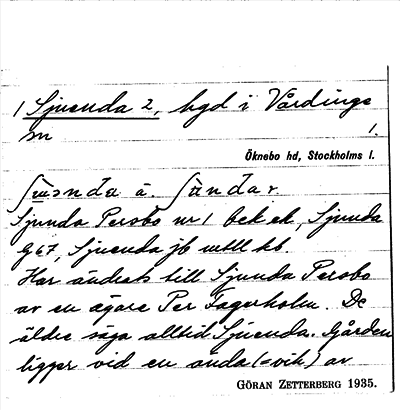 1 Sjuenda 2, hgd i Vårdinge
sn 1.
Öknebo hd, Stockholms l.
ʃɯ̀ənda ä. ʃɯ̀ndar
Sjunda Persbo nr 1 bek ek, Sjunda
g67, Sjuenda jb kb
Har ändrats till Sjunda Persbo
av en ägare Per Fagerholm. De
äldre säga alltid Sjuenda. Gården
ligger vid en ända (= vik) av
GÖRAN ZETTERBERG 1935.